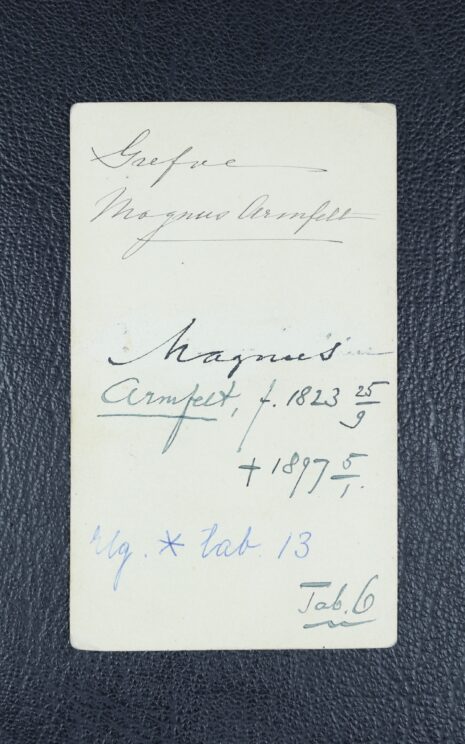 Grefve
Magnus Armfelt
Magnus
Armfelt, f. 1823 25/9
+ 1897 5/1.
* tab. 13
Tab. 6